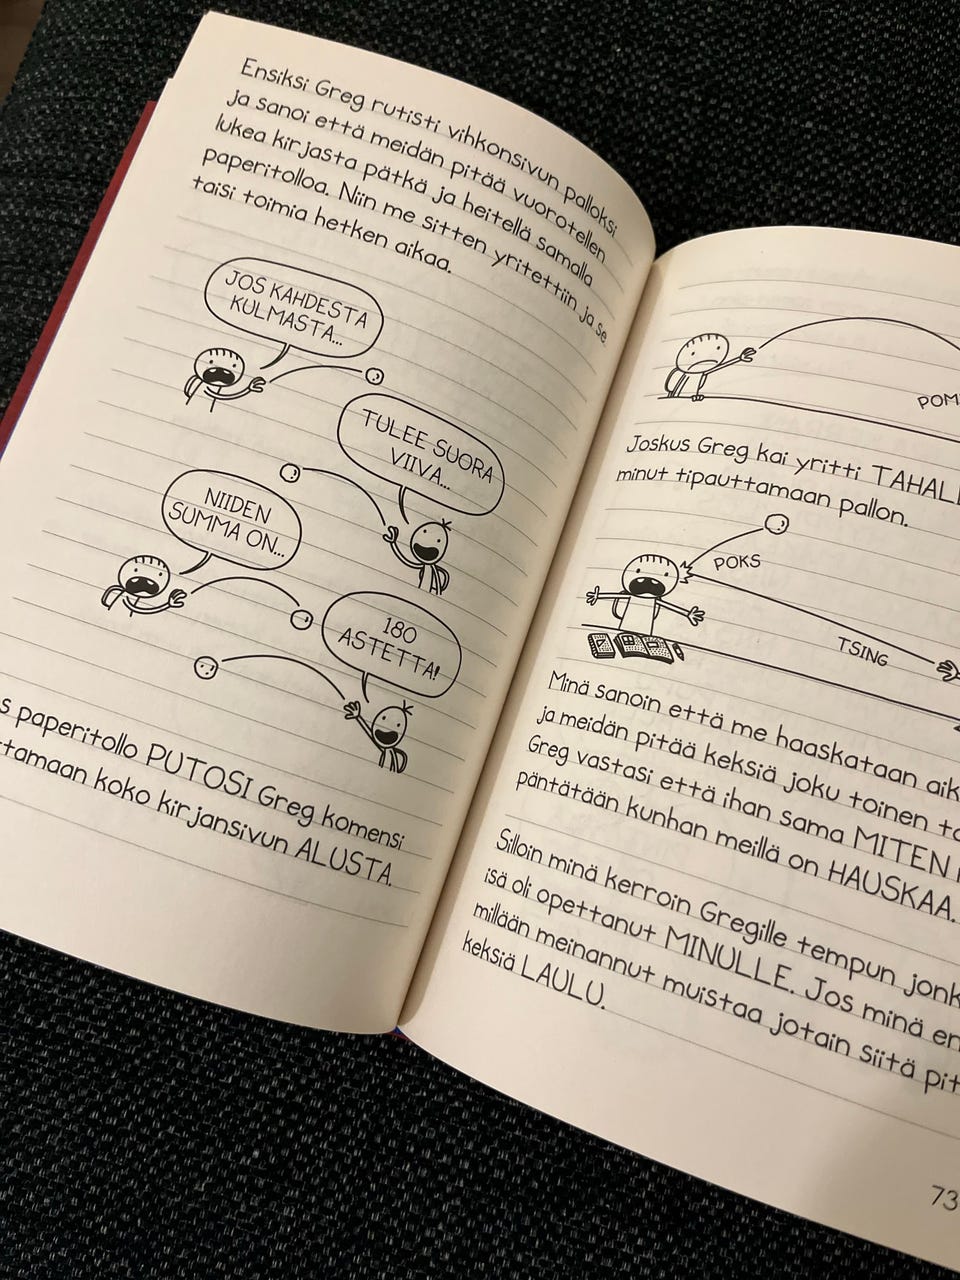 Ensiksi Greg rutisti vihkonsivun palloksi
ja sanoi että meidän pitää vuorotellen
lukea kirjasta pätkä ja heitellä samalla
paperitolloa. Niin me sitten yritettiin ja se
taisi toimia hetken aikaa.
JOS KAHDESTA
KULMASTA...
TULEE SUORA
VIIVA...
NIIDEN
SUMMA ON...
180
ASTETTA!
paperitollo PUTOSI Greg komensi
koko kirjansivun ALUSTA.
Joskus Greg kai yritti
minut tipauttamaan pallon.
POKS
TSING
Minä sanoin että me haaskataan
ja meidän pitää keksiä joku toinen
Greg vastasi että ihan sama MITEN
päntätään kunhan meillä on HAUSKAA.
Silloin minä kerroin Gregille tempun
isä oli opettanut MINULLE. Jos minä
millään meinannut muistaa jotain siitä
keksiä LAULU.
73